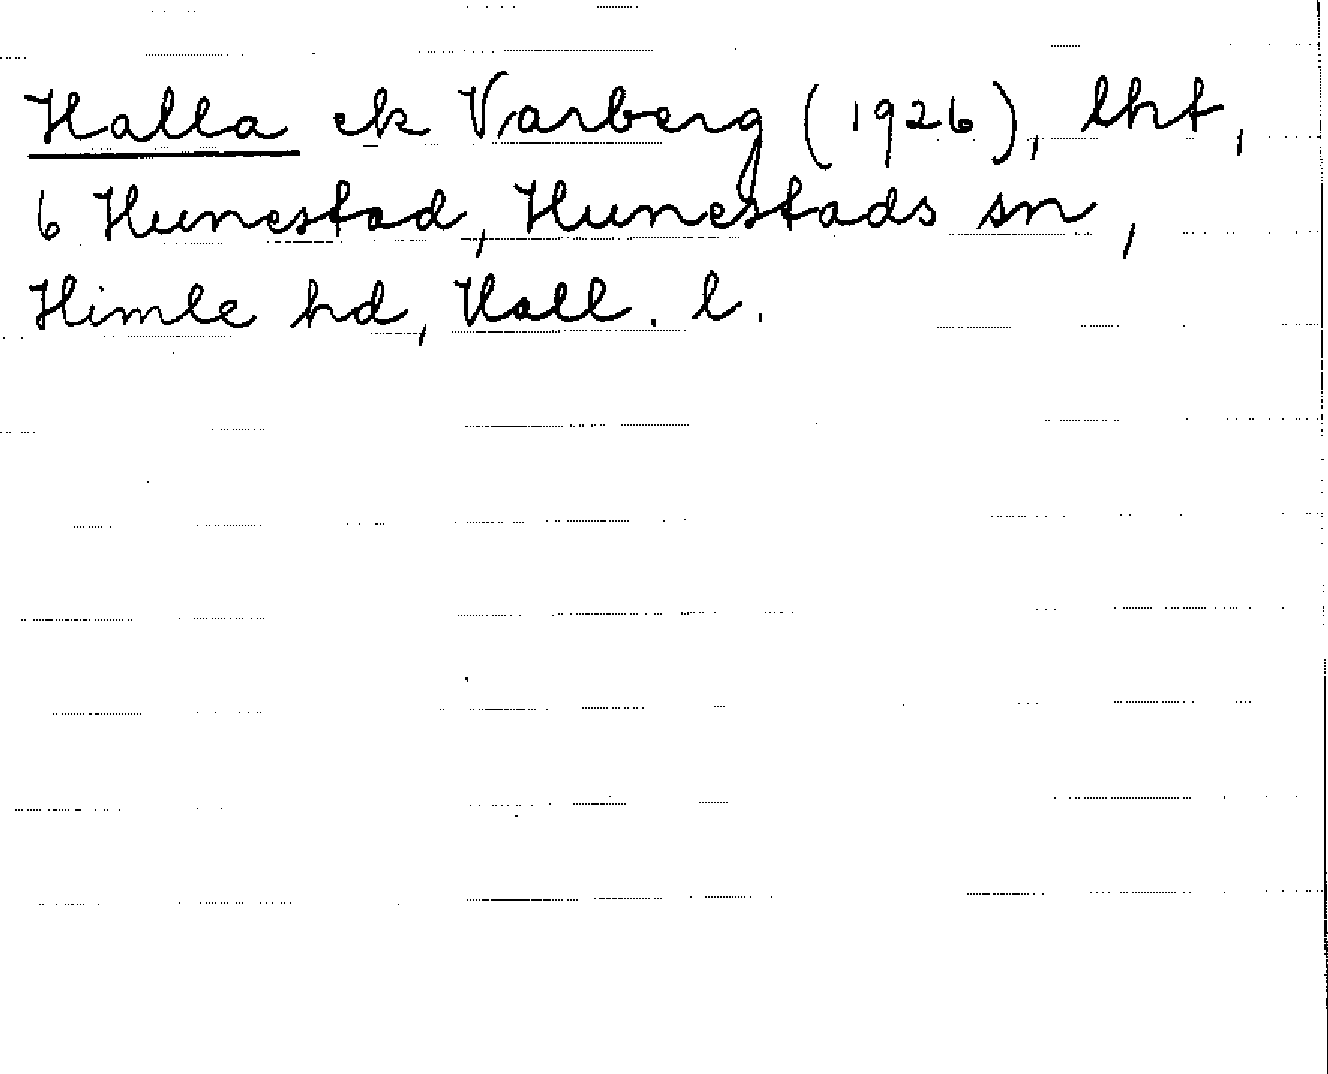 Halla ek Varberg (1926), lht,
6 Hunestad, Hunestads sn,
Himle hd, Hall. l.